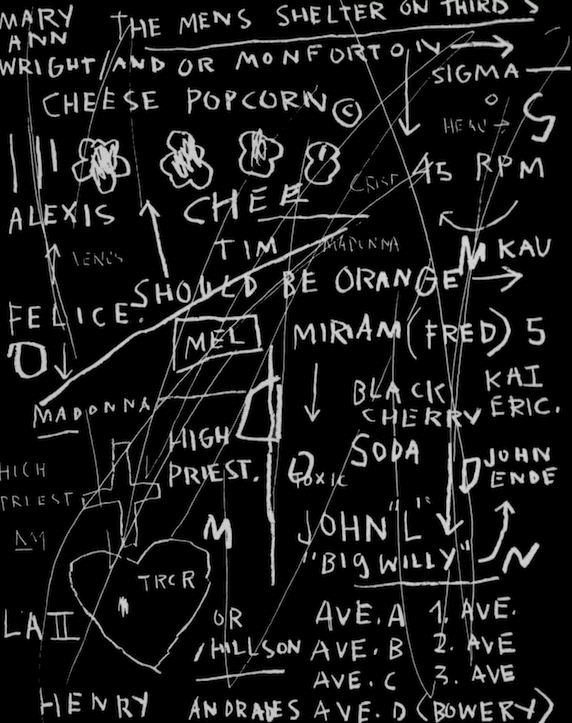 MARY
ANN
THE MENS SHELTER ON THIRD S
WRIGHT/AND OR MONFORTON →
SIGMA —
CHEESE POPCORN ©
HEAV → S
45 RPM
CRIST
ALEXIS
CHEE
VENUS
TIM
MADONNA
M KAU
SHOULD BE ORANGE →
FELICE.
MEL
MIRIAM (FRED) 5
BLACK
CHERRY
SODA
KAI
ERIC.
MADONNA
HIGH
PRIEST.
TOXIC
JOHN
ENDE
HIGH
PRIEST
JOHN "L"
"BIG WILLY"
M
N
TRCR
LA II
OR
/HILLSON
AVE. A 1. AVE.
AVE. B 2. AVE
AVE. C 3. AVE
HENRY ANDRADES AVE. D (BOWERY)